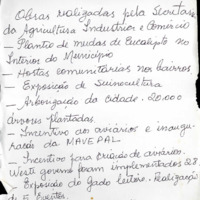 Obras realizadas pela Secretaria
da Agricultura Industria e Comércio
- Plantio de mudas de Eucalipto no
Interior do Municipio
- Hortas comunitárias nos bairros
- Exposição de Suinocultura
- Arborização da cidade. 20.000
árvores plantadas.
- Incentivo aos aviários e inaugu-
ração da MAVEPAL
- Incentivo para criação de aviários.
Neste governo foram implementados 28.
- Exposição do Gado Leiteiro. Realização
de 5 Eventos